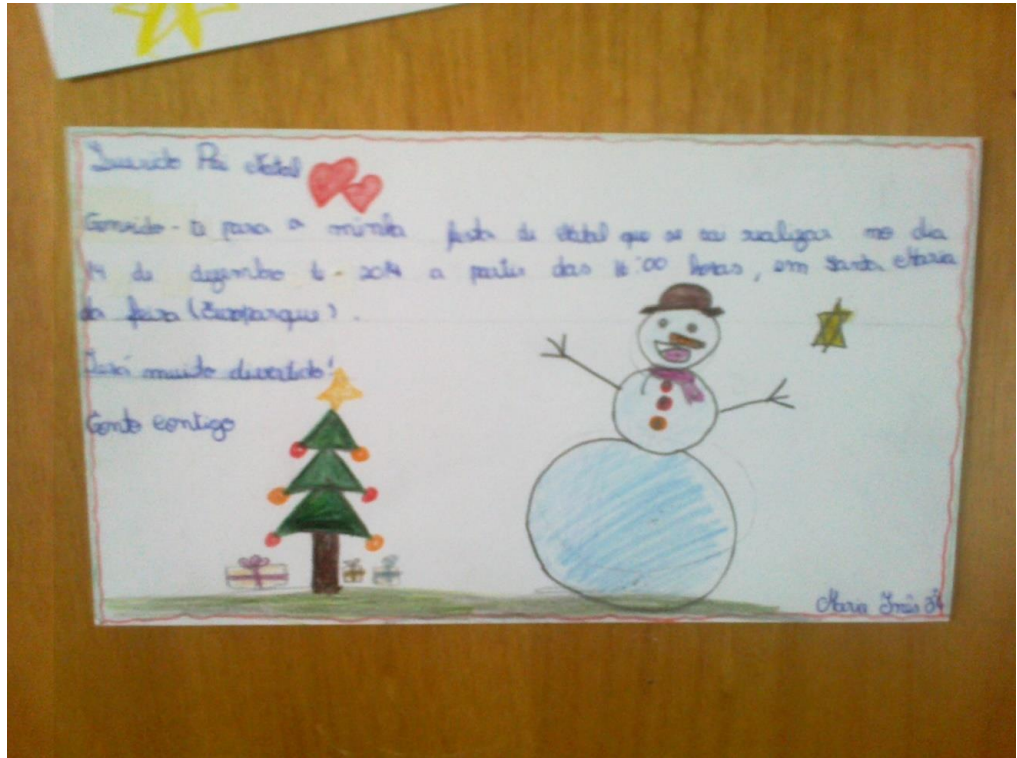 Querido Pai Natal
Convido-o para a minha festa de Natal que se vai realizar no dia
14 de dezembro de 2014 a partir das 16:00 horas, em Santa Maria
da feira (Europarque).
Será muito divertido!
Conto contigo
Maria Inês 3ºA